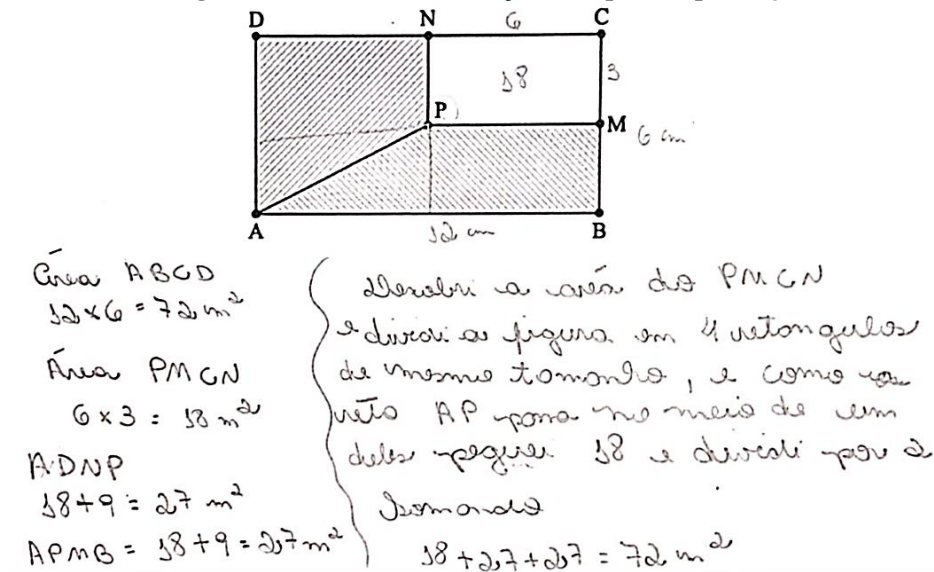 D N 6 C
18 3
P M 6 cm
A 12 cm B
Área ABCD
12 x 6 = 72 m²
Área PMCN
6 x 3 = 18 m²
ADNP
18 + 9 = 27 m²
APMB = 18 + 9 = 27 m²
Descobri a área do PMCN
e dividi a figura em 4 retangulos
de mesmo tamanho, e como a
reta AP passa no meio de um
deles peguei 18 e dividi por 2
Somando
18 + 27 + 27 = 72 m²